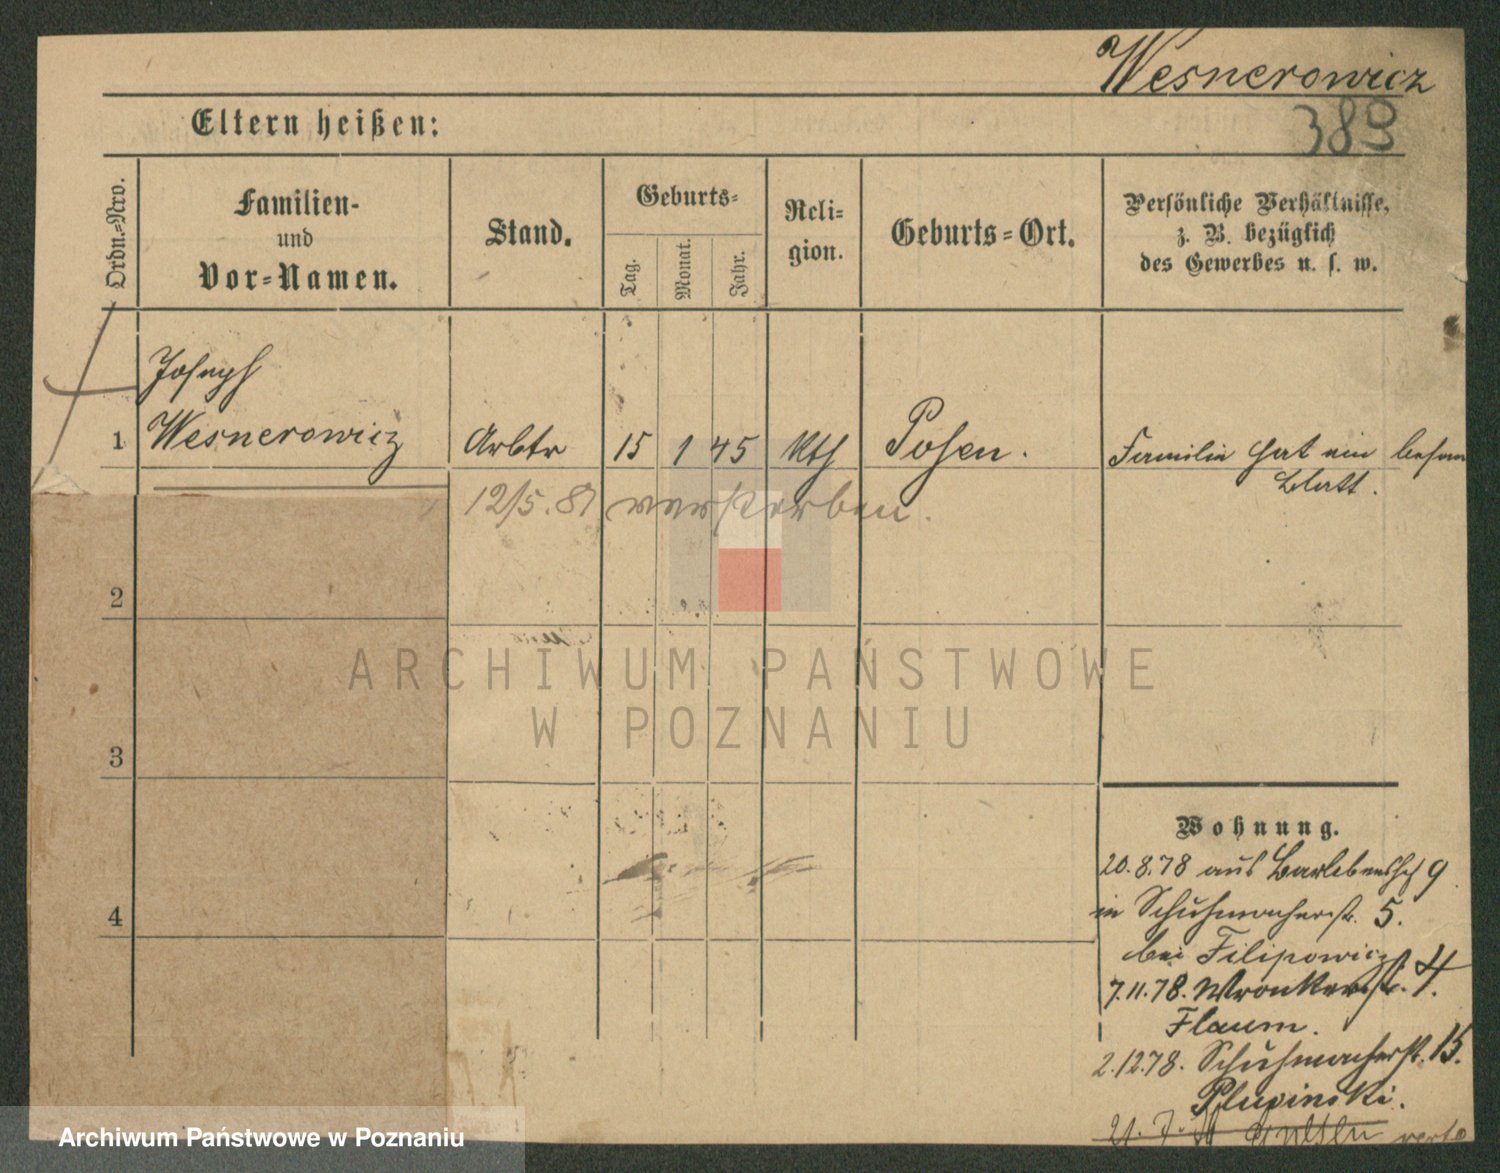 Wesnerowicz
389
Eltern heißen:
Ordn.=Nro.
Familien-
und
Vor=Namen.
Stand.
Geburts=
Tag.
Monat.
Jahr.
Reli=
gion.
Geburts=Ort.
Persönliche Verhältnisse,
z. B. bezüglich
des Gewerbes u. s. w.
Joseph
1 Wesnerowicz Arbtr 15 1 45 kth Posen. Familie hat ein beson
Blatt.
12/5.87 verstorben.
2
3
4
Wohnung.
20.8.78 aus 9
in Schuhmacherstr. 5.
bei Filipowicz
7.11.78. Wronkerstr. 4.
Flaum.
2.12.78. Schuhmacherstr. 15.
ARCHIWUM PAŃSTWOWE
W POZNANIU
Archiwum Państwowe w Poznaniu